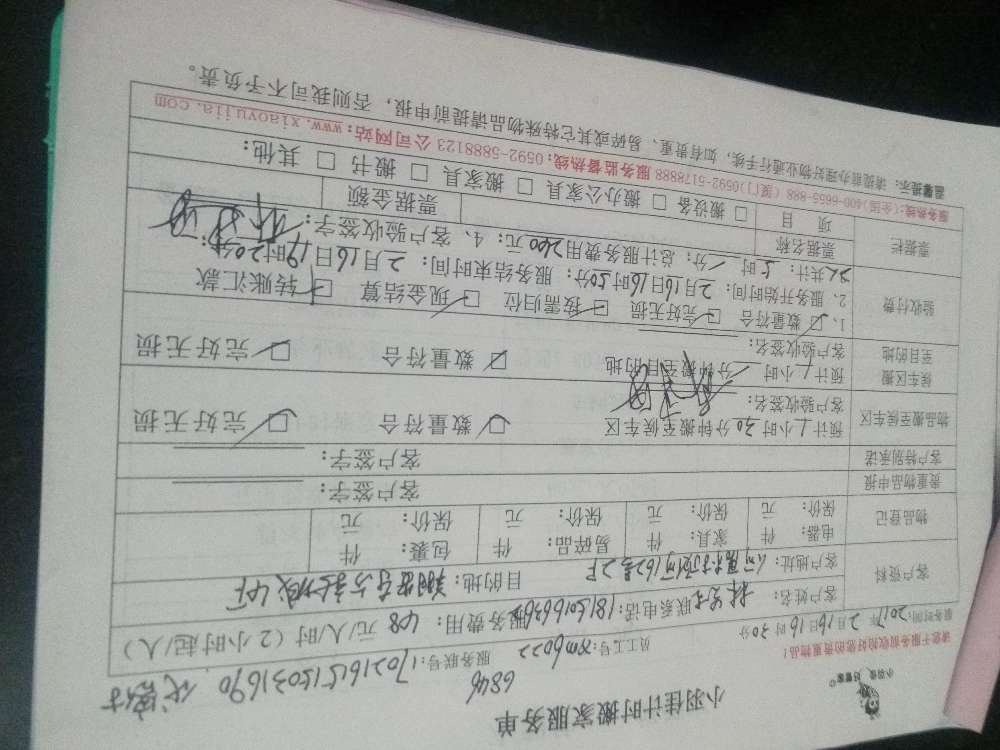 小羽佳计时搬家服务单
小羽佳 好管家
6846
请您于服务前收拾好您的贵重物品!
员工工号:
服务联号:1702161515031690
服务时间:2017年2月16日16时30分
客户姓名: 联系电话: 服务费用:48元/人/时(2小时起/人)
客户资料
客户地址: 目的地:
物品登记
电器: 件 家具: 件 易碎品: 件 包裹: 件
保价: 元 保价: 元 保价: 元 保价: 元
贵重物品申报 客户签字:
客户特别承诺 客户签字:
物品搬至候车区
预计1小时30分钟搬至候车区 数量符合 完好无损
客户验收签名:
候车区搬至目的地
预计1小时/分钟搬至目的地 数量符合 完好无损
客户验收签名:
验收付费
1、数量符合 完好无损 按需归位 现金结算 转账汇款
2、服务开始时间:2月16日16时50分;服务结束时间:2月16日19时20分;
3、共计:5时/分;总计服务费用240元;4、客户验收签字:
票据栏
票据名称 票据金额
项目 搬设备 搬办公家具 搬家具 搬书 其他:
服务热线:(全国)400-6655-888(厦门)0592-5178888 服务监督热线:0592-5888123 公司网站:www.xiaoyujia.com
温馨提示:请提前办理好物业通行手续,如有贵重、易碎或其它特殊物品请提前申报,否则我司不予负责。